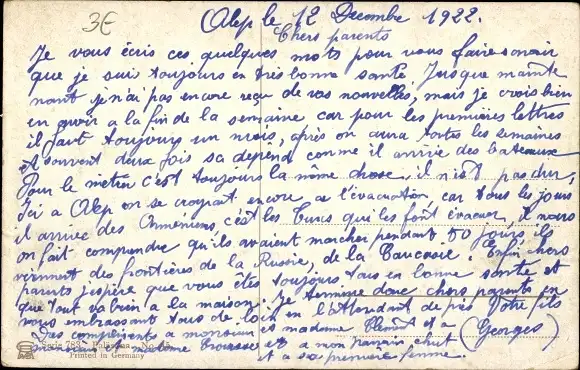 3€
Alep le 12 Decembre 1922.
Chers parents
Je vous écris ces quelques mots pour vous faire savoir
que je suis toujours en très bonne santé Jusque mainte
nant je n'ai pas encore reçu de vos nouvelles, mais je crois bien
en avoir a la fin de la semaine car pour les premières lettres
il faut toujours un mois, après on aura toutes les semaines
et souvent deux fois sa dépend comme il arrive des bateaux
Pour le métier c'est toujours la même chose, il n'est pas dur,
Ici a Alep on se croyait encore a l'évacuation, car tous les jours
il arrive des Arméniens, c'est les Turcs qui les font évacuer, il nous
on fait comprendre qu'ils avaient marcher pendant 50 jours ils
viennent des frontières de la Russie, de la Caucasie. Enfin chers
parents j'espère que vous êtes toujours tous en bonne santé et
que tout va bien a la maison. Je termine donc chers parents en
vous embrassant tous de loin en l'attendant de près Votre fils
Des compliments a monsieur et madame Clément et a (Georges)
monsieur et madame et a mon parrain
et a sa première femme.
Serie 783. Palästina. No.
Printed in Germany